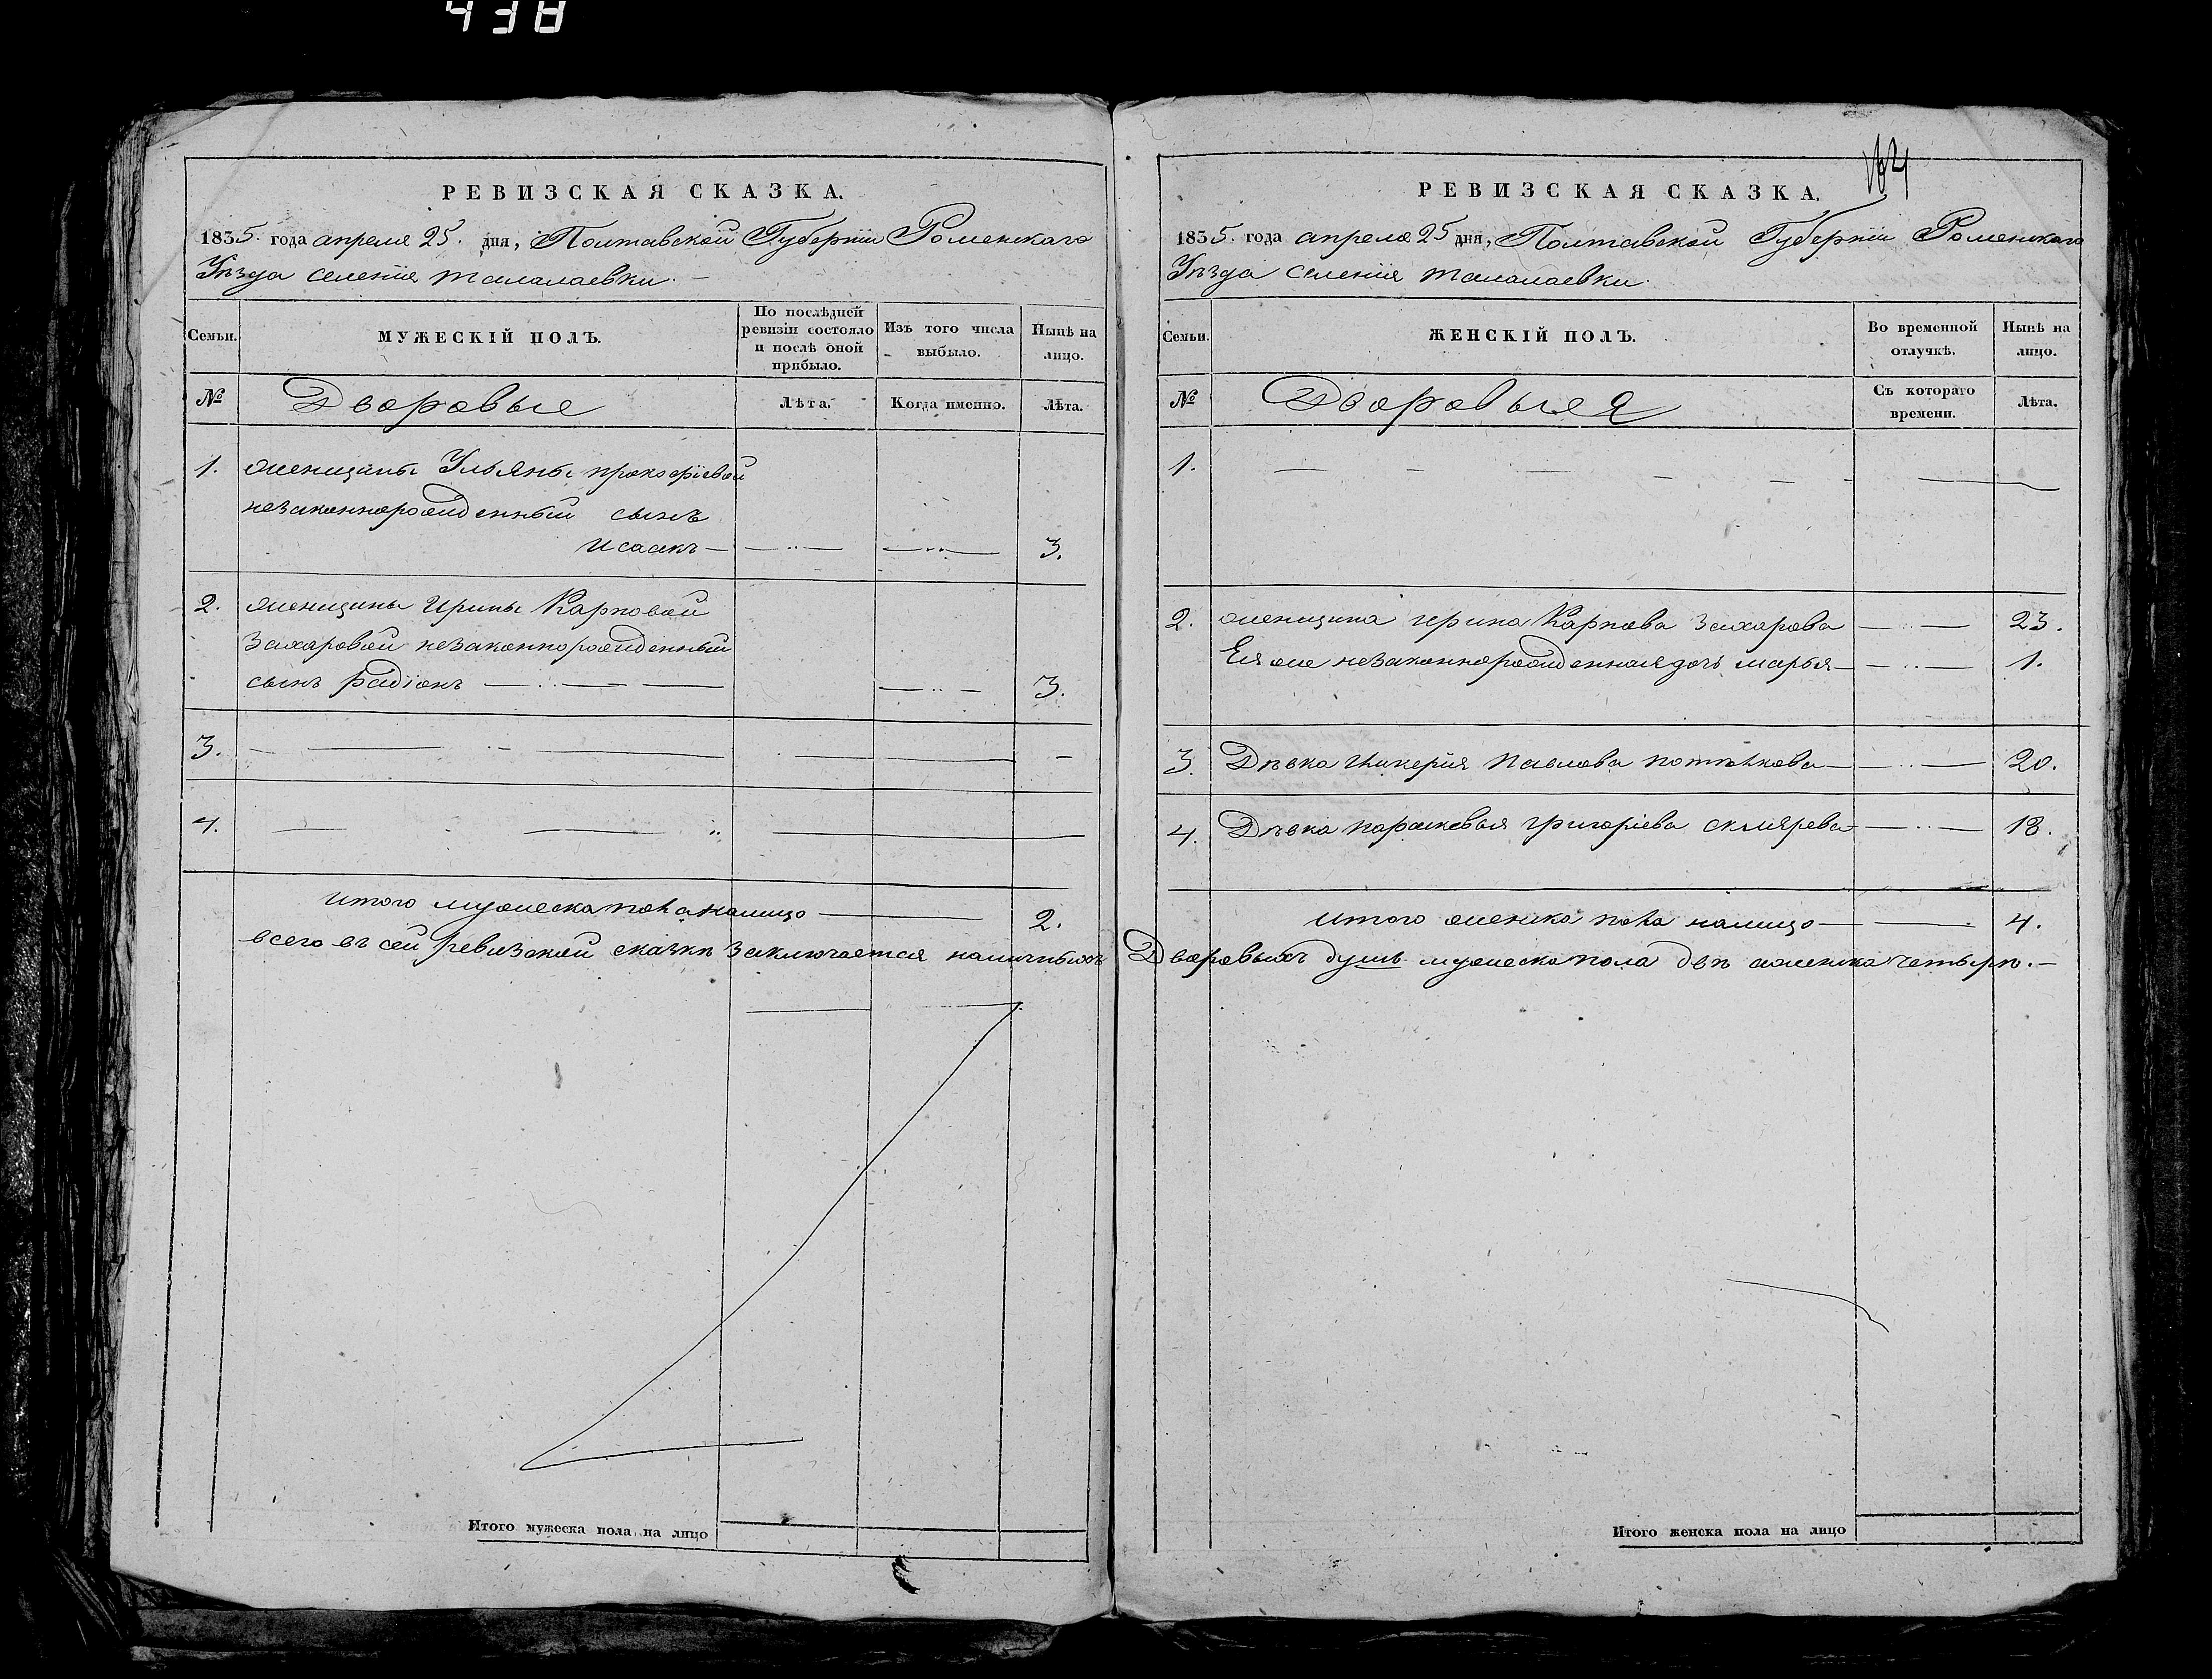 438
РЕВИЗСКАЯ СКАЗКА.
1835. года апреля 25. дня, Полтавской Губернїи Роменскаго
Уѣзда селенїя талалаевки.
Семьи.
МУЖЕСКІЙ ПОЛЪ.
По послѣдней ревизіи состояло и послѣ оной прибыло.
Изъ того числа выбыло.
Нынѣ на лицо.
№
Дворовые
Лѣта.
Когда именно.
Лѣта.
1. женщины Ульяны прокофїевой
незаконнорожденный сынъ
исаакъ 3.
2. женщины ирины Карповой
Захаровой незаконнорожденный
сынъ радїонъ 3.
3.
4.
итого мужеска пола налицо 2.
всего въ сей ревизской сказкѣ заключается наличныхъ
Итого мужеска пола на лицо
164
РЕВИЗСКАЯ СКАЗКА.
1835. года апреля 25 дня, Полтавской Губернїи Роменскаго
Уѣзда селенїя талалаевки.
Семьи.
ЖЕНСКІЙ ПОЛЪ.
Во временной отлучкѣ.
Нынѣ на лицо.
№
Дворовыя
Съ котораго времени.
Лѣта.
1.
2. женщина ирина Карпова Захарова 23.
Ея же незаконнорожденная дочь марья 1.
3. Дѣвка Павлова 20.
4. Дѣвка парасковья григорїева склярева 18.
итого женска пола налицо 4.
Дворовыхъ душъ мужеска пола двѣ аженска четырѣ.
Итого женска пола на лицо